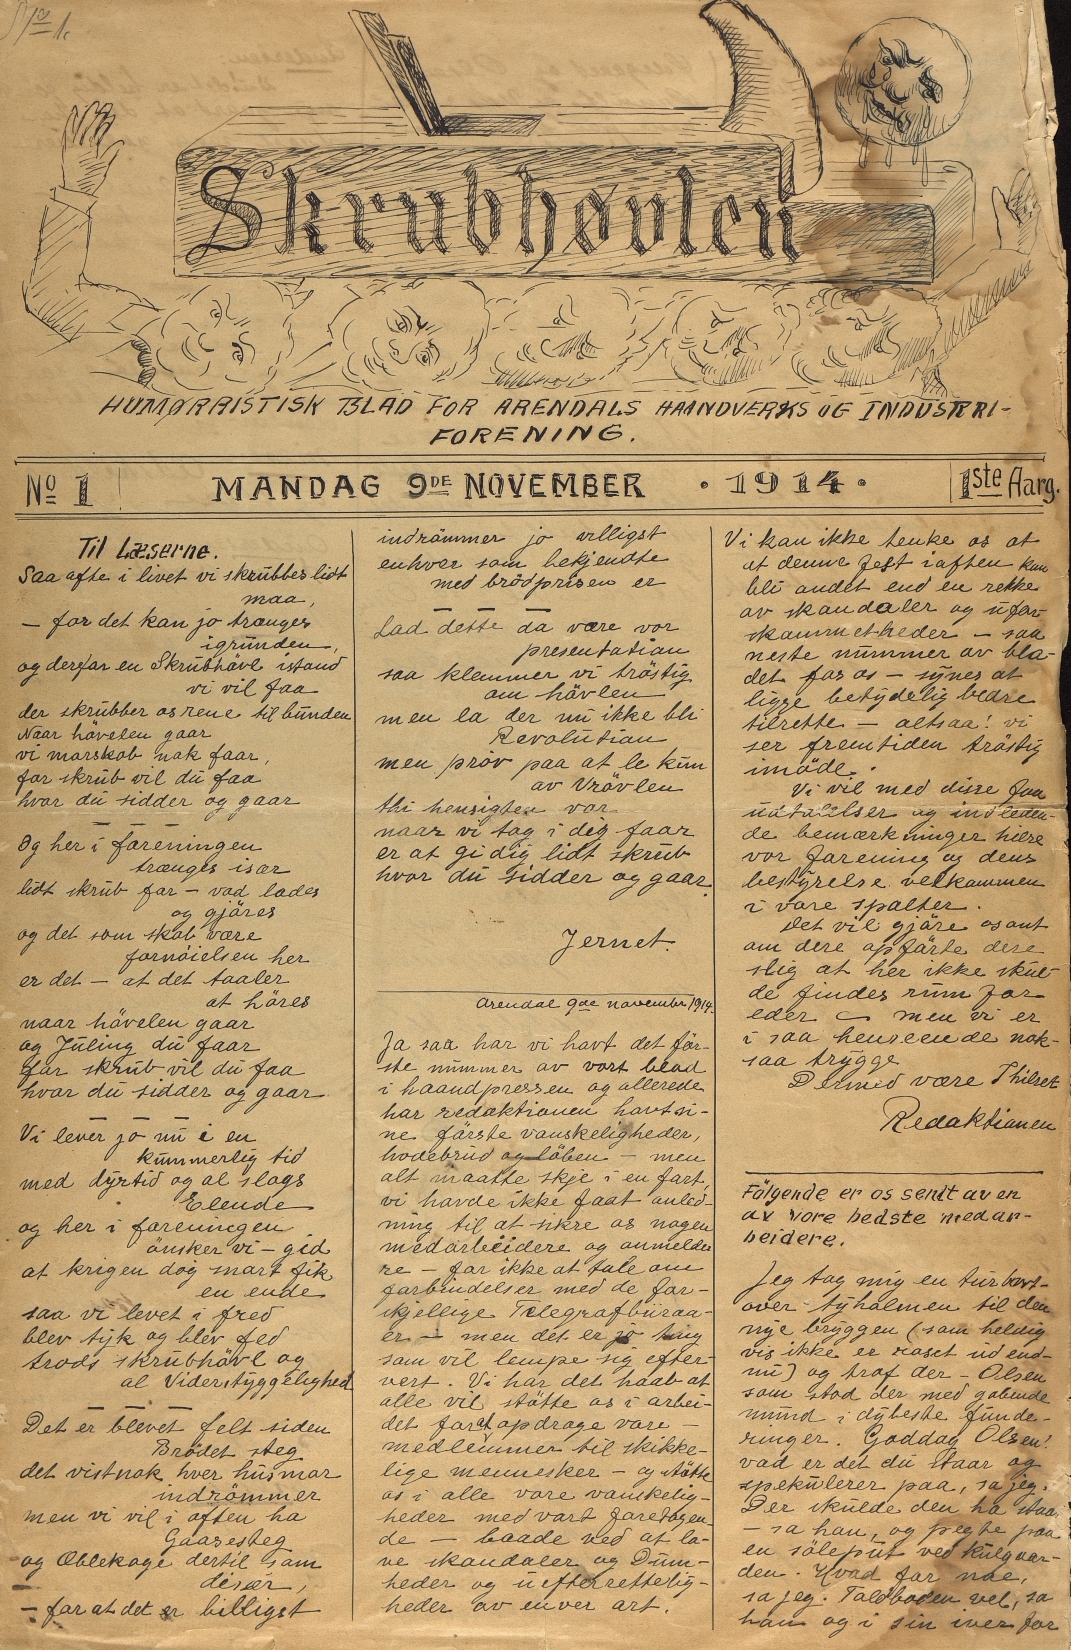 No 1.
Skrubhøvlen
HUMØRRISTISK BLAD FOR ARENDALS HAANDVERKS OG INDUSTRI-
FORENING.
No 1
MANDAG 9DE NOVEMBER · 1914 ·
1ste Aarg.
Til Læserne.
Saa ofte i livet vi skrubbes lidt
maa,
– for det kan jo trænges
igrunden,
og derfor en Skrubhövl istand
vi vil faa
der skrubber os rene til bunden
Naar hövelen gaar
vi morskab nok faar,
for skrub vil du faa
hvor du sidder og gaar
Og her i foreningen
trænges især
lidt skrub for – vad lades
og gjöres
og det som skab være
fornöielsen her
er det – at det taaler
at höres
naar hövelen gaar
og Juling du faar
for skrub vil du faa
hvor du sidder og gaar
Vi lever jo nu i en
kummerlig tid
med dyrtid og al slags
Elende
og her i foreningen
önsker vi – gid
at krigen dog snart fik
en ende
saa vi levet i fred
blev tyk og blev fed
trods skrubhövl og
al Viderstyggelighed
Det er blevet følt siden
Brödet steg
det vistnok hver husmor
indrömmer
men vi vil i aften ha
Gaasesteg
og Æblekage dertil som
desær,
– for at det er billigst
indrömmer jo villigst
enhver som bekjendte
med brödprisen er
Lad dette da være vor
presentation
saa klemmer vi tröstig
om hövlen
men la der nu ikke bli
Revolution
men pröv paa at le kun
av Vrövlen
thi hensigten var
naar vi tog i dig faar
er at gi dig lidt skrub
hvor du sidder og gaar.
Jernet.
Arendal 9de november 1914.
Ja saa har vi havt detför-
ste nummer av vort blad
i haandpressen og allerede
har redaktionen havt si-
ne förste vanskeligheder,
hodebrud og löben – men
alt maatte skje i en fart,
vi havde ikke faat anled-
ning til at sikre os nogen
medarbeidere og anmelde
re – for ikke at tale om
forbindelser med de for-
skjellige Telegrafbüraa-
er – men det er jo ting
som vil lempe sig efter-
vert. Vi har det haab at
alle vil stötte os i arbei-
det for at opdrage vore –
medlemmer til skikke-
lige mennesker – og stötte
os i alle vore vanskelig-
heder med vort foretagen
de – baade ved at la-
ve skandaler og Dum-
heder og uefterrettelig-
heder av enver art.
Vi kan ikke tenke os at
at denne fest i aften kan
bli andet end en rekke
av skandaler og ufor-
skammetheder – saa
neste nummer av bla-
det for os – synes at
ligge betydelig bedre
tilrette – altsaa! vi
ser fremtiden tröstig
imöde.
Vi vil med disse faa
udtalelser og indleden-
de bemærkninger hilse
vor forening og dens
bestyrelse velkommen
i vore spalter.
Det vil gjöre os ont
om dere opförte dere
slig at her ikke skul-
de findes rum for
eder – men vi er
i saa henseende nok-
saa trygge
Dermed være I hilset
Redaktionen
Fölgende er os sendt av en
av vore bedste medar-
beidere.
Jeg tog mig en tur bort-
over tyholmen til den
nye bryggen (som heldig
vis ikke er raset ud end-
nu) og traf der – Olsen
som stod der med gabende
mund i dybeste funde-
ringer. Goddag Olsen!
vad er det du staar og
spekulerer paa, sa jeg.
Der skulde den ha staa
– sa han, og pegte paa
en söleput ved kulgaar-
den. Hvad for noe,
sa jeg. Toldboden vel, sa
han og i sin iver for